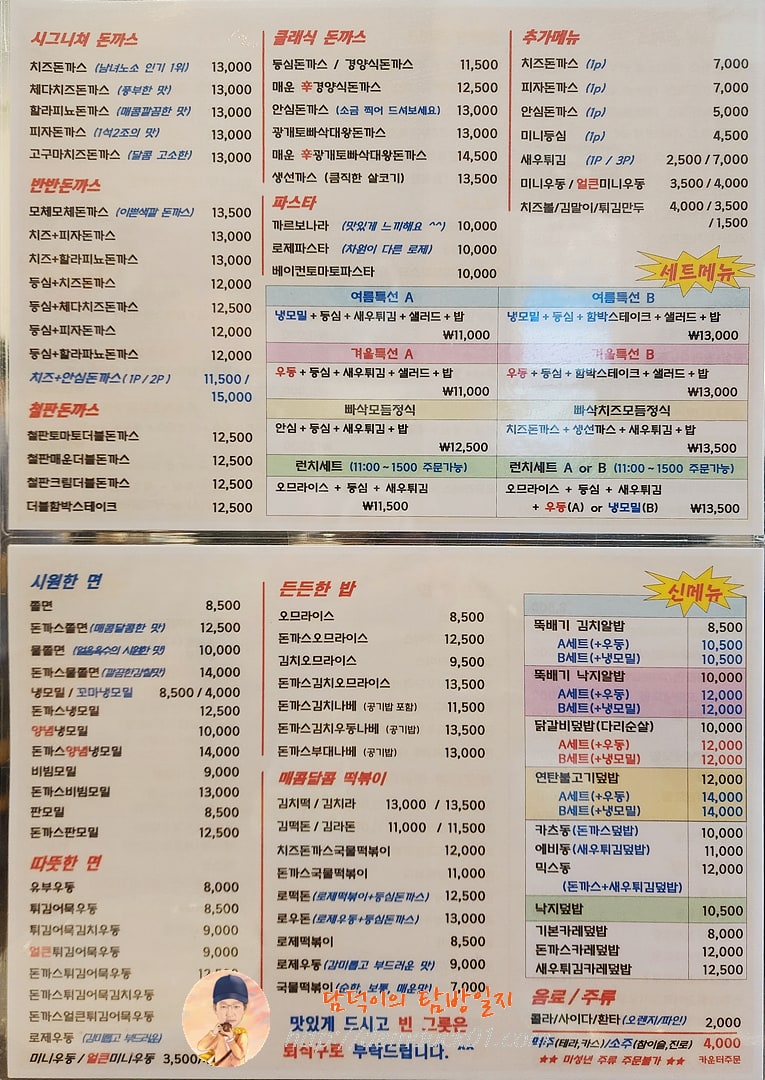 시그니쳐 돈까스
치즈돈까스 (남녀노소 인기 1위) 13,000
체다치즈돈까스 (풍부한 맛) 13,000
할라피뇨돈까스 (매콤깔끔한 맛) 13,000
피자돈까스 (1석2조의 맛) 13,000
고구마치즈돈까스 (달콤 고소한) 13,000
반반돈까스
모체모체돈까스 (이쁜색깔 돈까스) 13,500
치즈+피자돈까스 13,000
치즈+할라피뇨돈까스 13,000
등심+치즈돈까스 12,000
등심+체다치즈돈까스 12,500
등심+피자돈까스 12,000
등심+할라파뇨돈까스 12,000
치즈+안심돈까스(1P/2P) 11,500 /
15,000
철판돈까스
철판토마토더블돈까스 12,500
철판매운더블돈까스 12,500
철판크림더블돈까스 12,500
더블함박스테이크 12,500
클래식 돈까스
등심돈까스 / 경양식돈까스 11,500
매운 辛경양식돈까스 12,500
안심돈까스 (소금 찍어 드셔보세요) 13,000
광개토빠삭대왕돈까스 13,000
매운 辛광개토빠삭대왕돈까스 14,500
생선까스 (큼직한 살코기) 13,500
파스타
까르보나라 (맛있게 느끼해요 ^^) 10,000
로제파스타 (차원이 다른 로제) 10,000
베이컨토마토파스타 10,000
추가메뉴
치즈돈까스 (1p) 7,000
피자돈까스 (1p) 7,000
안심돈까스 (1p) 5,000
미니등심 (1p) 4,500
새우튀김 (1P / 3P) 2,500 / 7,000
미니우동/얼큰미니우동 3,500 / 4,000
치즈볼/김말이/튀김만두 4,000 / 3,500
/ 1,500
세트메뉴
여름특선 A
냉모밀+등심+새우튀김+샐러드+밥
₩11,000
여름특선 B
냉모밀+등심+함박스테이크+샐러드+밥
₩13,000
겨울특선 A
우동+등심+새우튀김+샐러드+밥
₩11,000
겨울특선 B
우동+등심+함박스테이크+샐러드+밥
₩13,000
빠삭모듬정식
안심+등심+새우튀김+밥
₩12,500
빠삭치즈모듬정식
치즈돈까스+생선까스+새우튀김+밥
₩13,500
런치세트 (11:00~1500 주문가능)
오므라이스 + 등심 + 새우튀김
₩11,500
런치세트 A or B (11:00~1500 주문가능)
오므라이스 + 등심 + 새우튀김
+ 우동(A) or 냉모밀(B) ₩13,500
시원한 면
쫄면 8,500
돈까스쫄면(매콤달콤한 맛) 12,500
물쫄면 (얼음육수의 시원한 맛) 10,000
돈까스물쫄면(깔끔한감칠맛) 14,000
냉모밀/꼬마냉모밀 8,500 / 4,000
돈까스냉모밀 12,500
양념냉모밀 10,000
돈까스양념냉모밀 14,000
비빔모밀 9,000
돈까스비빔모밀 13,000
판모밀 8,500
돈까스판모밀 12,500
따뜻한 면
유부우동 8,000
튀김어묵우동 8,500
튀김어묵김치우동 9,000
얼큰튀김어묵우동 9,000
돈까스튀김어묵우동
돈까스튀김어묵김치우동
돈까스얼큰튀김어묵우동
로제우동 (감미롭고 부드러운)
미니우동/얼큰미니우동 3,500/
든든한 밥
오므라이스 8,500
돈까스오므라이스 12,500
김치오므라이스 9,500
돈까스김치오므라이스 13,500
돈까스김치나베 (공기밥 포함) 11,500
돈까스김치우동나베 (공기밥) 13,500
돈까스부대나베 (공기밥) 13,000
매콤달콤 떡볶이
김치떡/김치라 13,000 / 13,500
김떡돈/김라돈 11,000 / 11,500
치즈돈까스국물떡볶이 12,000
돈까스국물떡볶이 11,000
로떡돈(로제떡볶이+등심돈까스) 12,500
로우돈(로제우동+등심돈까스) 13,000
로제떡볶이 8,500
로제우동(감미롭고 부드러운 맛) 9,000
국물떡볶이(순한, 보통, 매운맛) 7,000
맛있게 드시고 빈 그릇은
퇴식구로 부탁드립니다. ^^
신메뉴
뚝배기 김치알밥 8,500
A세트(+우동) 10,500
B세트(+냉모밀) 10,500
뚝배기 낙지알밥 10,000
A세트(+우동) 12,000
B세트(+냉모밀) 12,000
닭갈비덮밥(다리순살) 10,000
A세트(+우동) 12,000
B세트(+냉모밀) 12,000
연탄불고기덮밥 12,000
A세트(+우동) 14,000
B세트(+냉모밀) 14,000
카츠동(돈까스덮밥) 10,000
에비동(새우튀김덮밥) 11,000
믹스동 12,000
(돈까스+새우튀김덮밥)
낙지덮밥 10,500
기본카레덮밥 8,000
돈까스카레덮밥 12,000
새우튀김카레덮밥 12,500
음료/주류
콜라/사이다/환타(오렌지/파인) 2,000
맥주(테라,카스)/소주(참이슬,진로) 4,000
★★ 미성년 주류 주문불가 ★★ 카운터주문
담덕이의 탐방일지